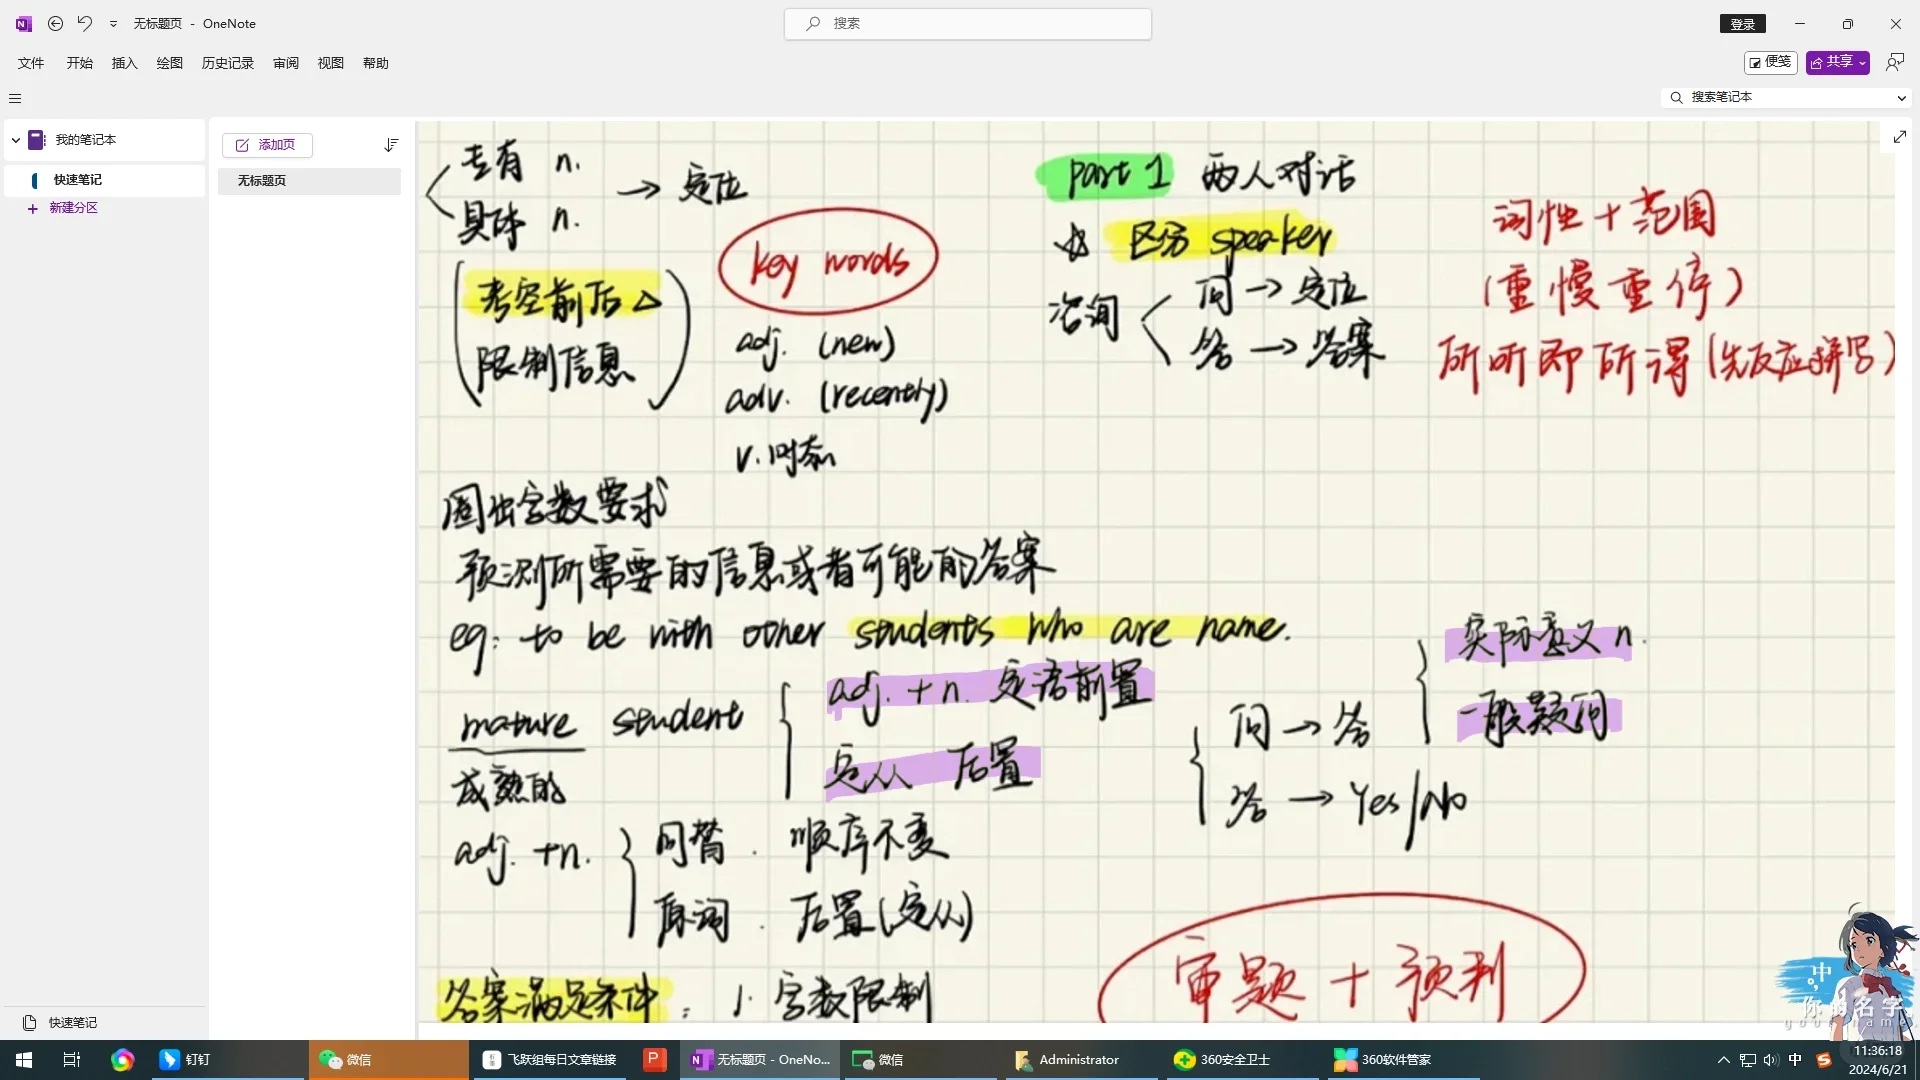 无标题页 - OneNote
搜索
登录
文件 开始 插入 绘图 历史记录 审阅 视图 帮助
便笺
共享
搜索笔记本
我的笔记本
快速笔记
新建分区
添加页
无标题页
专有 n.
具体 n.
→ 定位
考空前后△
限制信息
key words
adj. (new)
adv. (recently)
v.时态
Part 1 两人对话
☆ 区分 speaker
咨询
问 → 定位
答 → 答案
词性 + 范围
(重慢重停)
所听即所得(先反应拼写)
圈出字数要求
预测所需要的信息或者可能的答案
eg: to be with other students who are name.
mature student
成熟的
adj. + n. 定语前置
定从 后置
问 → 答
答 → Yes/No
实际意义 n.
一般疑问
adj. +n.
同替. 顺序不变
原词. 后置(定从)
答案满足条件: 1. 字数限制
审题 + 预判
快速笔记
中
你的名字
your name.
钉钉
微信
飞跃组每日文章链接
无标题页 - OneNo...
微信
Administrator
360安全卫士
360软件管家
中
11:36:18
2024/6/21